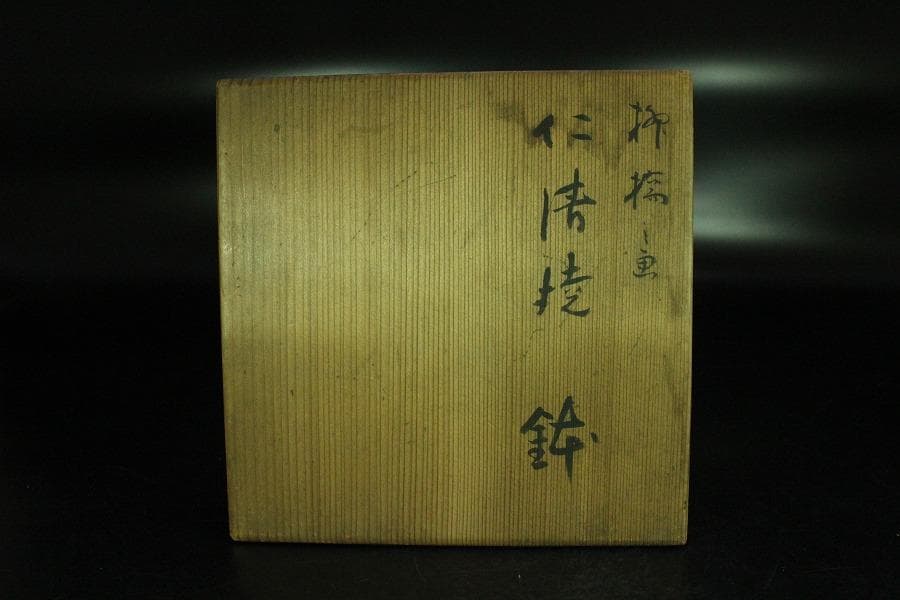 柳橋之画
仁清焼 鉢